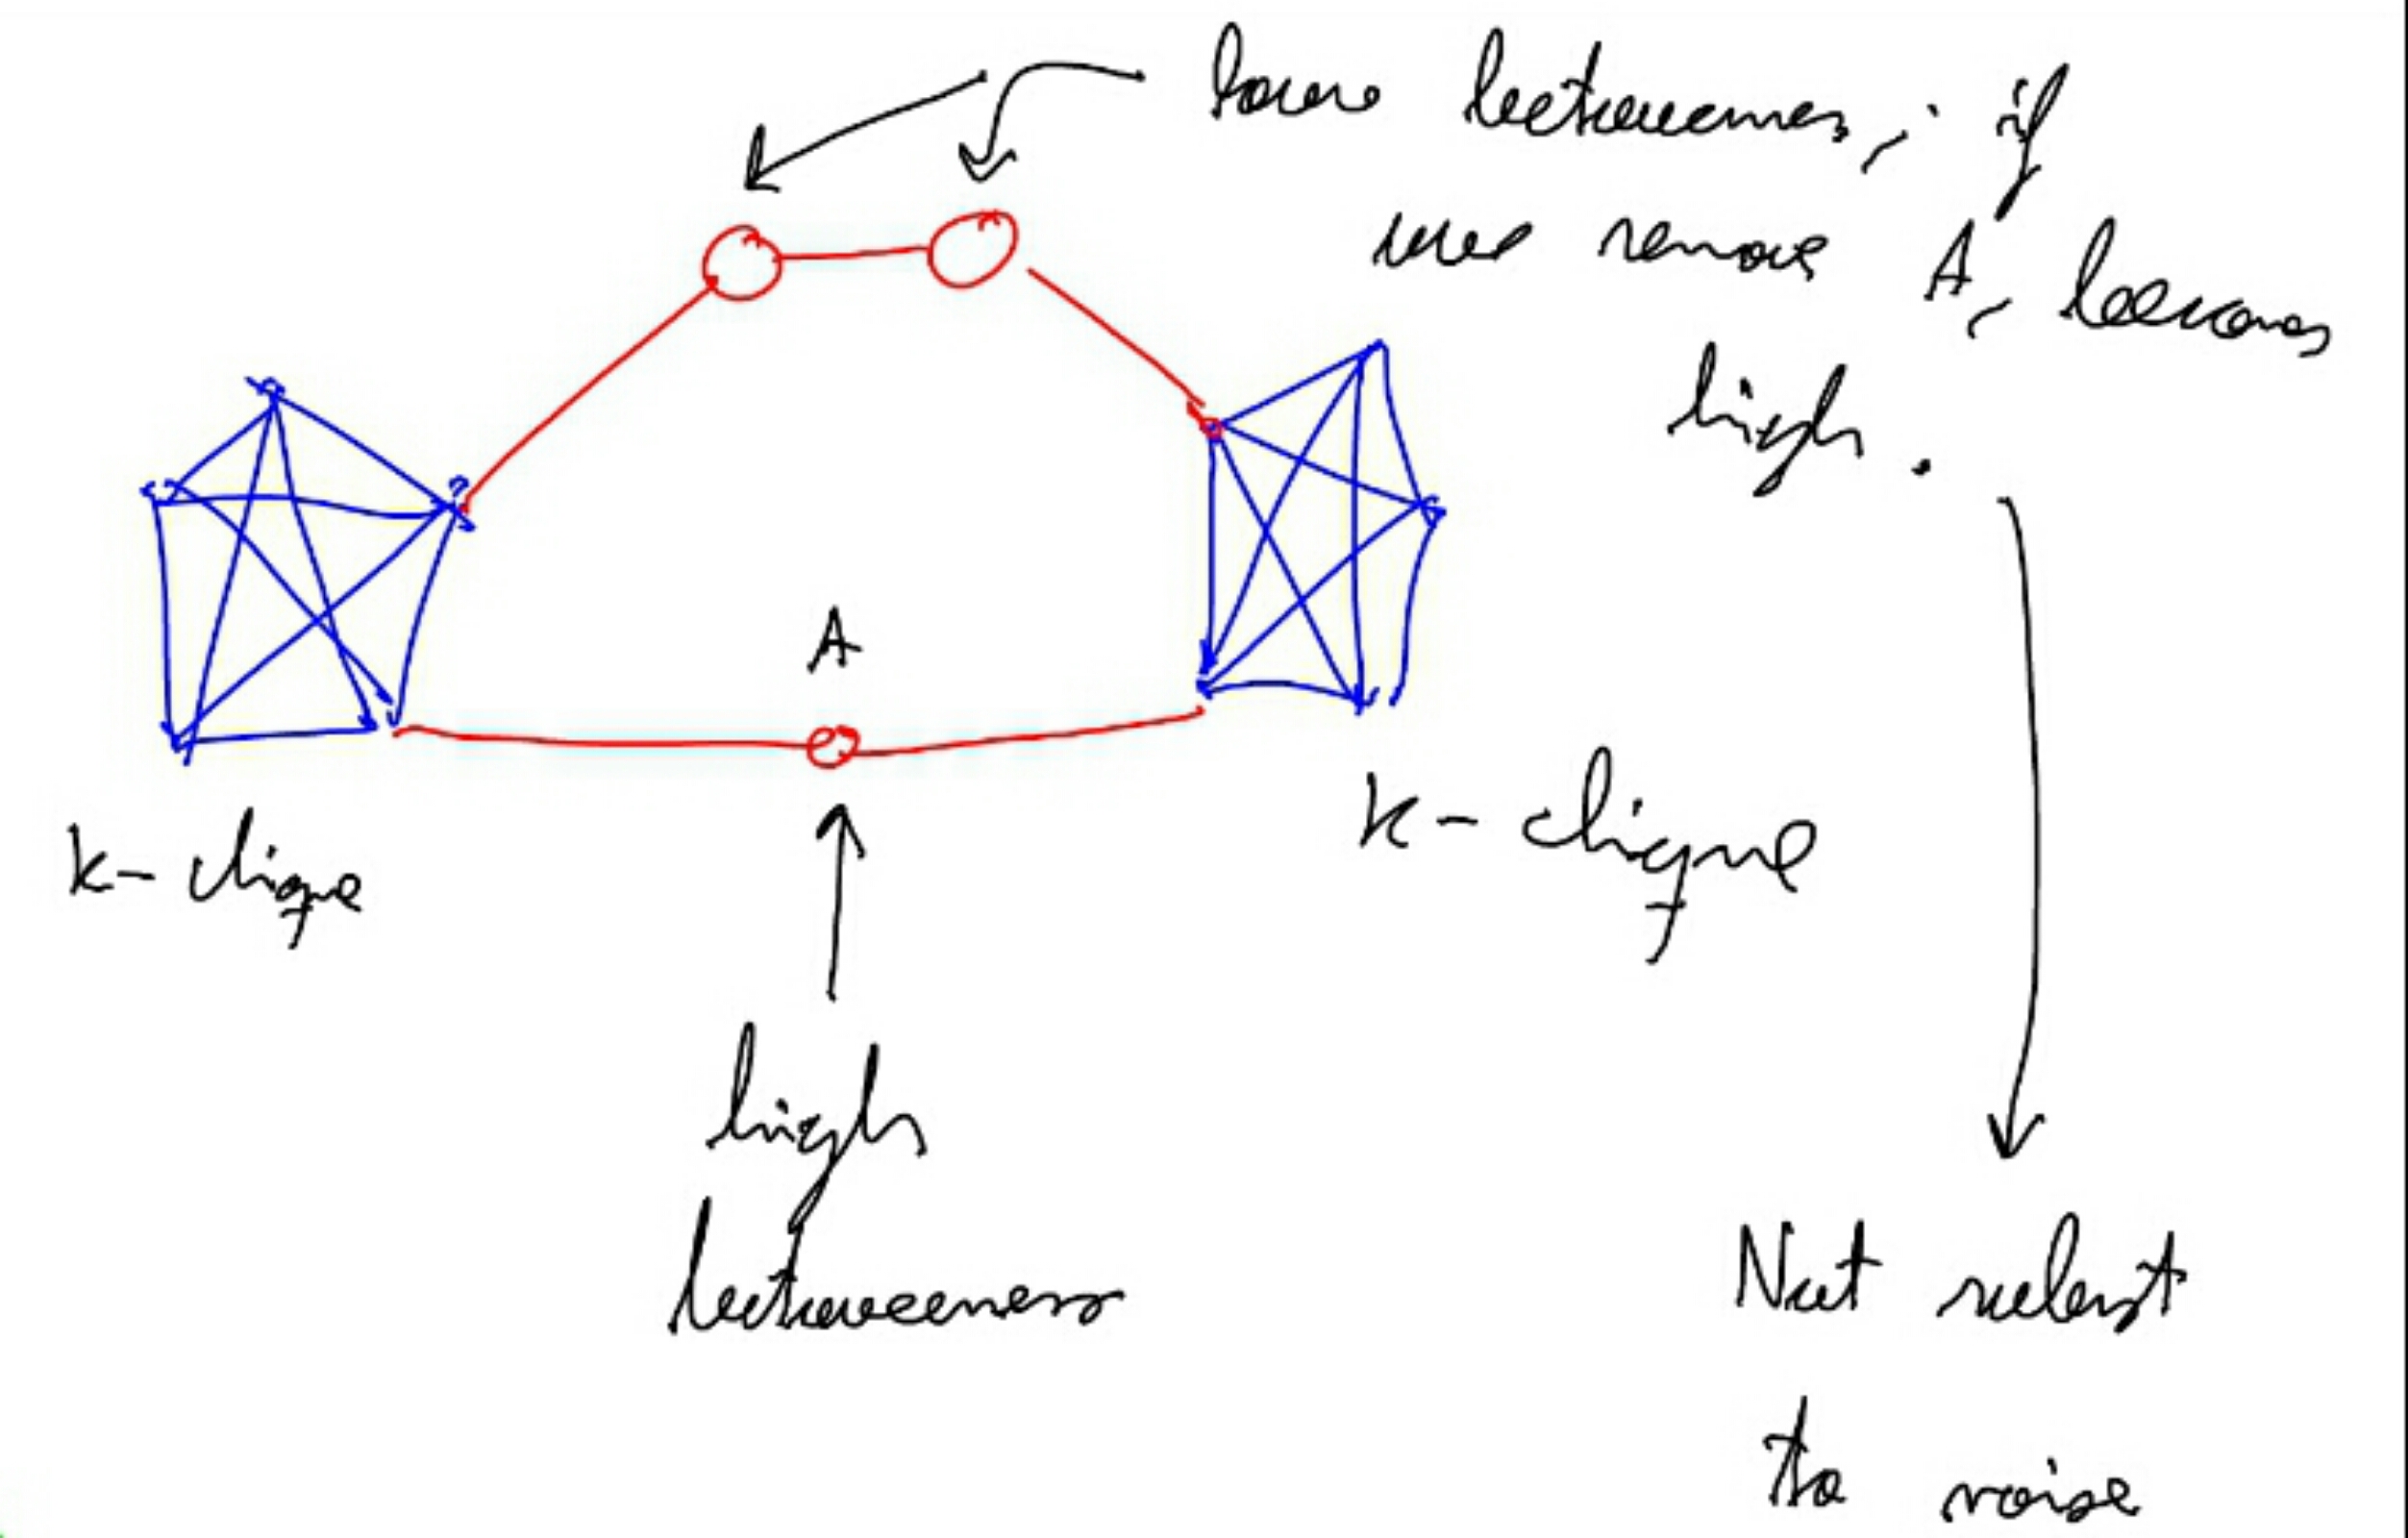 have betweenness, if
we remove A, becomes
high.
A
k-clique
k-clique
high
betweenness
Not robust
to noise